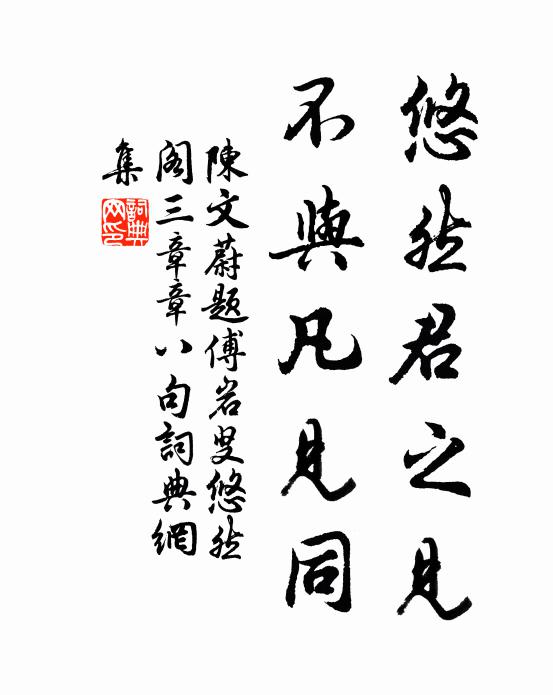 悠然君之見
不與凡見同
陳文蔚題傅岩叟悠然
閣三章章八句詞典網
集
詞典
网印